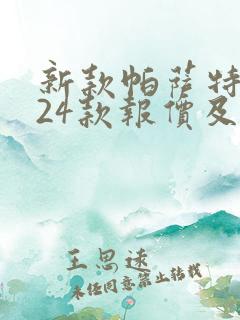 新款帕萨特
24款报價及
王思速
未经同意禁止转载